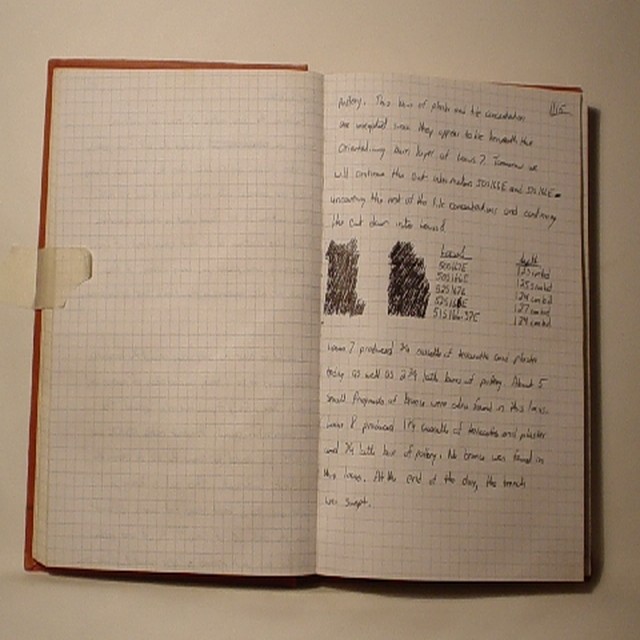 115
pottery. This layer of plaster and tile concentration
are unexpected since they appear to be beneath the
burn layer of Locus 7. Tomorrow we
will continue the cut into meters 50S/66E and 52S/66E
uncovering the rest of the tile concentrations and confirming
the cut down into
depth
50S/67E 123 cm bd
50S/66E 125 cm bd
52S/67E 124 cm bd
52S/66E 127 cm bd
124 cm bd
Locus 7 produced 3/4 cassette of terracotta and plaster
today as well as 2 3/4 latte bowls of pottery. About 5
small fragments of bronze were also found in this locus.
Locus 8 produced 1 3/4 cassette of terracotta and plaster
and 3/4 latte bowl of pottery. No bronze was found in
this locus. At the end of the day, the trench
was swept.